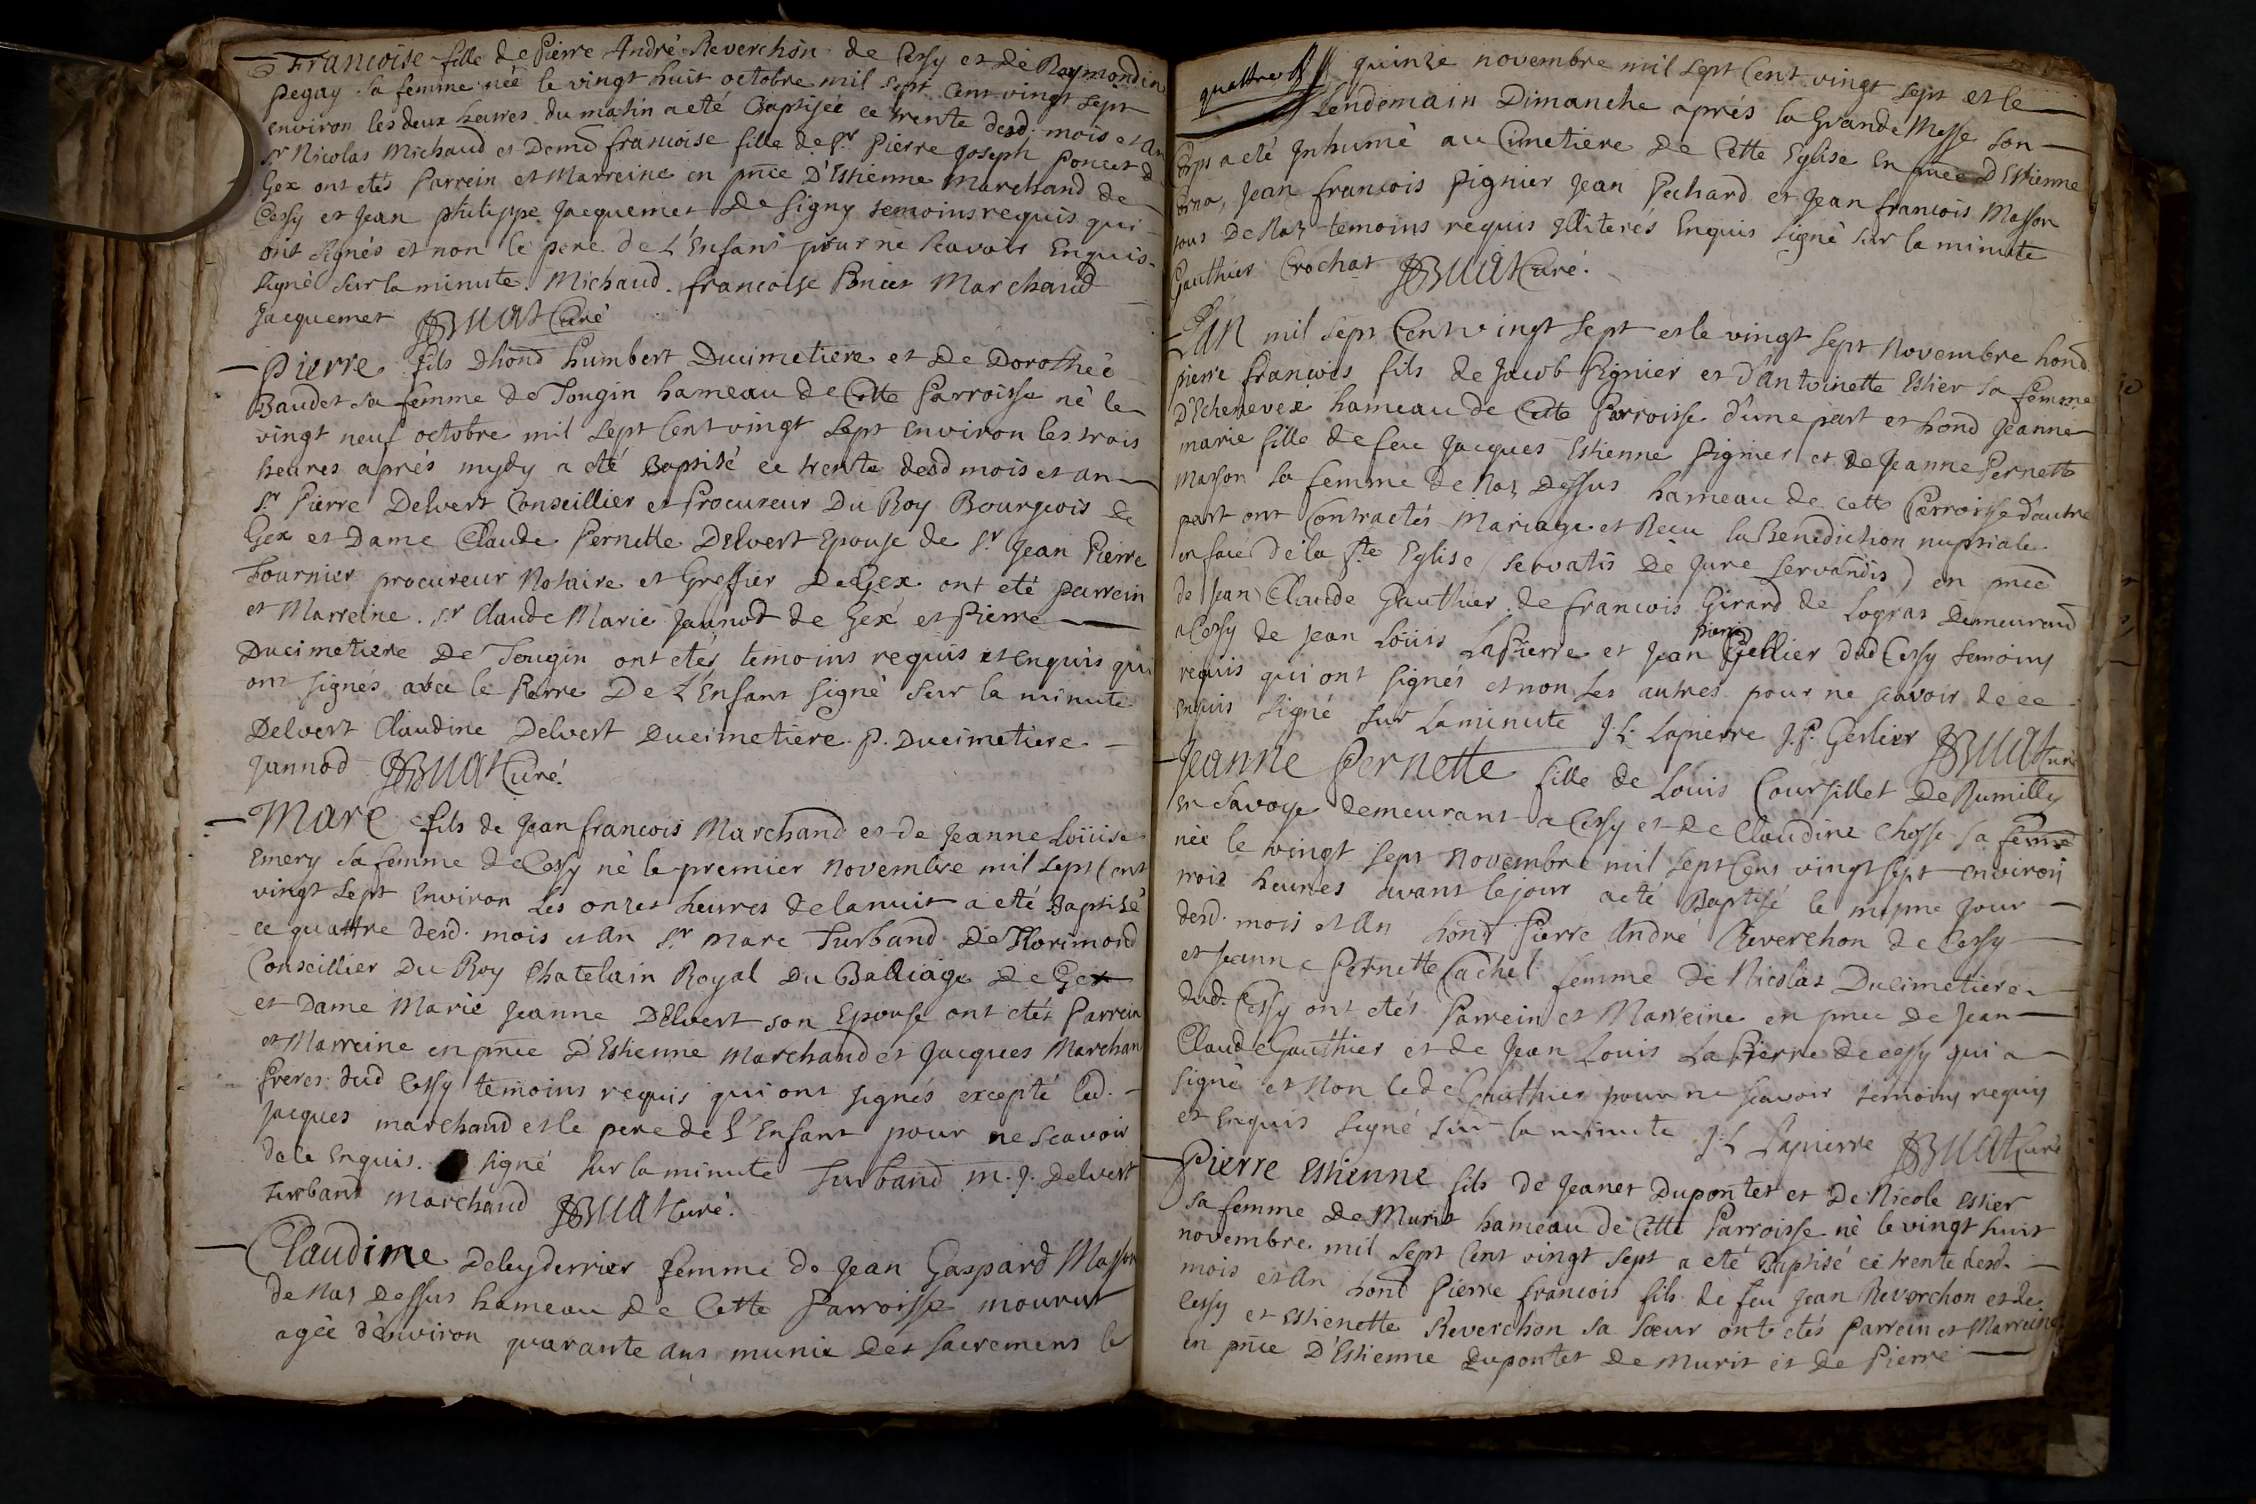 Francoise fille de Pierre André Reverchon de Cessy et de Raymondine
pegay sa femme née le vingt huit octobre mil sept cent vingt sept
environ les deux heures du matin a eté Baptisée ce trente desd. mois et an
Sr Nicolas Michaud et Demd francoise fille de Sr Pierre Joseph poncet de
Gex ont etés Parrein et Marreine en pnce D'Estienne Marchand de
Cessy et Jean philippe Jacquemet de Signy temoins requis qui
ont signés et non le pere de L'Enfant pour ne scavoir Enquis
signé sur la minute. Michaud. francoise Poncet Marchand
Jacquemet JBuat Curé
Pierre fils dhond humbert Ducimetiere et De Dorothée
Baudet sa femme de Tougin hameau de Cette Parroisse né le
vingt neuf octobre mil sept Cent vingt sept environ les trois
heures aprés mydy a eté Baptisé ce trente desd mois et an
Sr Pierre Delvert Conseillier et Procureur Du Roy Bourgeois de
Gex et Dame Claude Pernette Delvert Epouse de Sr Jean Pierre
Fournier procureur Notaire et Greffier De Gex ont eté parrein
et Marreine. Sr Claude Marie Jannod de Gex et Pierre
Ducimetiere De Tougin ont etés temoins requis et enquis qui
ont signés avec le Perre De L'Enfant signé sur la minute
Delvert Claudine Delvert Ducimetiere. P. Ducimetiere.
Jannod JBuat Curé.
Marc fils de Jean francois Marchand et de Jeanne Loüise
Emery sa femme de Cessy né le premier novembre mil sept Cent
vingt sept Environ les onzes heures de la nuit a eté Baptisé
ce quattre desd. mois et an Sr Marc Turband De Florimond
Conseillier Du Roy Chatelain Royal Du Balliage de Gex
et Dame Marie Jeanne Delvert son Epouse ont etés Parrein
et Marreine en pnce D'Estienne Marchand et Jacques Marchan
freres dud Cessy temoins requis qui ont signés excepté led.
Jacques marchand et le pere de L'Enfant pour ne scavoir
de ce Enquis. signé sur la minute Turband M. J. Delvert
Turband Marchand JBuat Curé.
Claudine Deleyderrier femme de Jean Gaspard Masson
de Naz Dessus hameau de Cette Parroisse mourut
agée d'environ quarante ans munie des Sacremens le
quattre quinze novembre mil sept Cent vingt sept et le
Lendemain Dimanche aprés la Grande Messe son
Corps a eté Inhumé au Cimetiere de Cette Eglise en pnce D'Estienne
Jean francois Pignier Jean Pechard et Jean francois Masson
tous De Naz temoins requis Illiterés Enquis signé sur la minute
Gauthier Crochat JBuat Curé.
L'an mil sept Cent vingt sept et le vingt sept Novembre hond
pierre francois fils de Jacob Pignier et d'Antoinette Estier sa femme
D'Echenevex hameau de Cette Parroisse d'une part et hond Jeanne
marie fille de feu Jacques Estienne Pignier et de Jeanne Pernette
Masson sa femme de Naz Dessus hameau de cette Parroisse d'autre
part ont Contractés Mariage et Recu la Benediction nuptiale
en face de la Ste Eglise (servatis De Jure servandis) en pnce
de Jean Claude Gauthier de francois Girard de Logras demeurand
a Cessy de Jean Loüis LaPierre et Jean pierre Gellier dud Cessy temoins
requis qui ont signés et non les autres pour ne scavoir de ce
enquis signé sur la minute J. L. Lapierre J. P. Gerlier JBuat Curé
Jeanne Pernette fille de Louis Coursillet De Rumilly
en Savoye demeurant a Cessy et de Claudine Chosse sa femme
née le vingt sept novembre mil sept Cens vingt sept environ
trois heures avant le jour a eté Baptisé le mesme jour
desd. mois et an hond Pierre André Reverchon de Cessy
et Jeanne Pernette Cachet femme de Nicolas Ducimetiere
dud. Cessy ont etés Parrein et Marreine en pnce de Jean
Claude Gauthier et de Jean Louis LaPierre de cessy qui a
signé et non led. Gauthier pour ne scavoir temoins requis
et Enquis signé sur la minute J. L. Lapierre JBuat Curé
Pierre Estienne fils de Jeanet Dupontet et De Nicole Estier
sa femme De Murit hameau de Cette Parroisse né le vingt huit
novembre mil sept Cent vingt sept a eté Baptisé ce trente desd.
mois et An hond Pierre francois fils de feu Jean Reverchon et de
Cessy et Estienette Reverchon sa soeur onts etés Parrein et Marreine
en pnce D'Estienne Dupontet de Murit et de Pierre